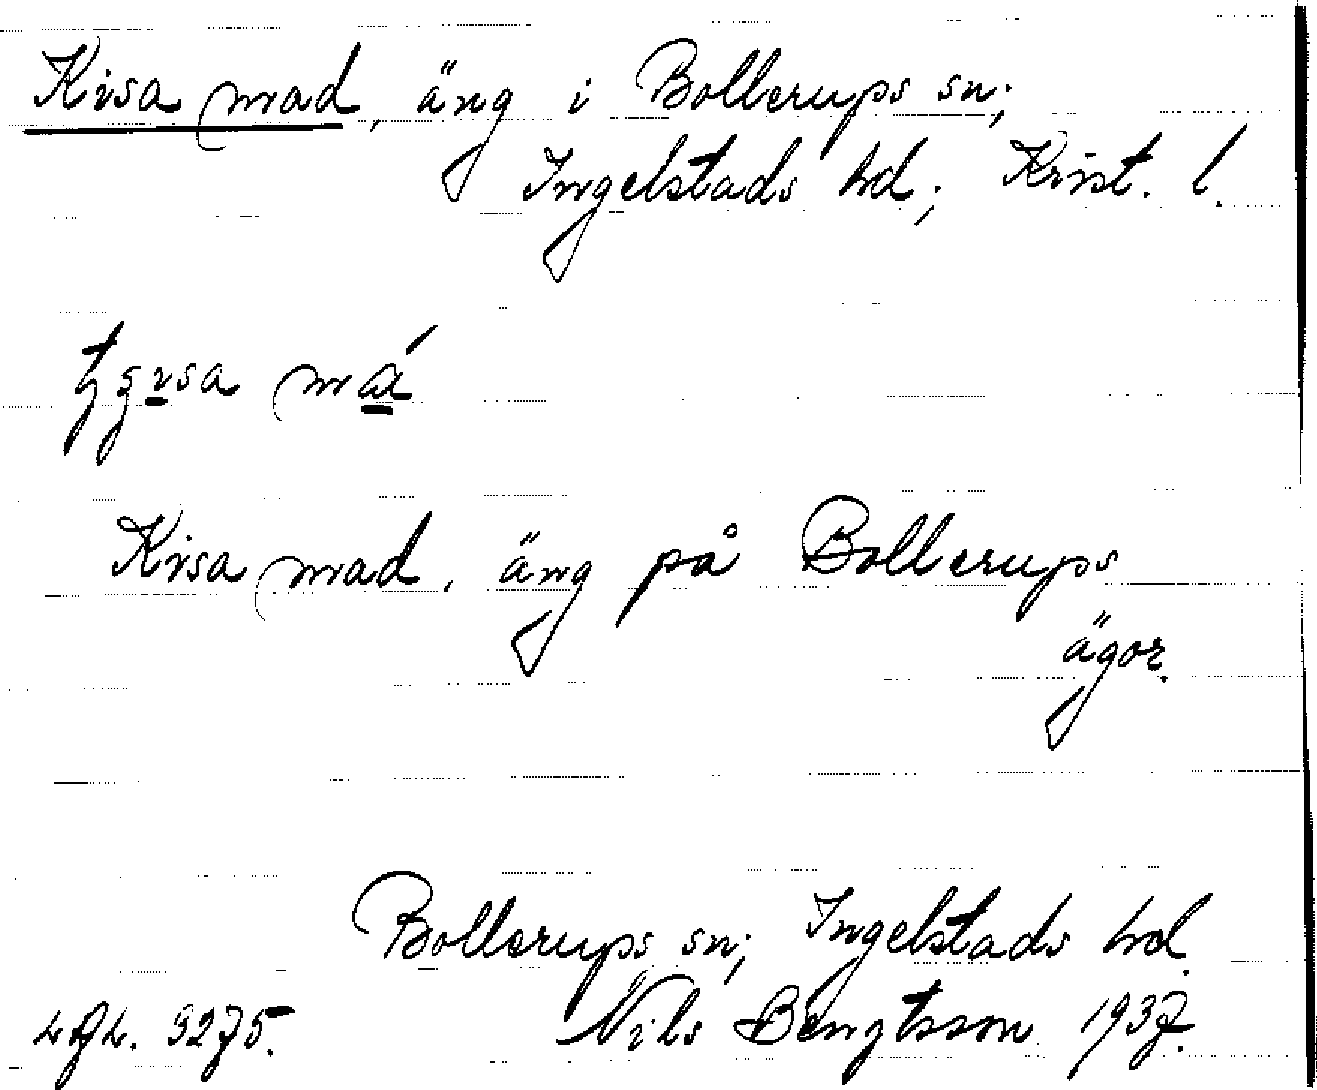 Kisa mad, äng i Bollerups sn;
Ingelstads hd; Krist. l.
má
Kisa mad. äng på Bollerups
ägor.
Bollerups sn; Ingelstads hd.
3275. Nils Bengtsson 1937.